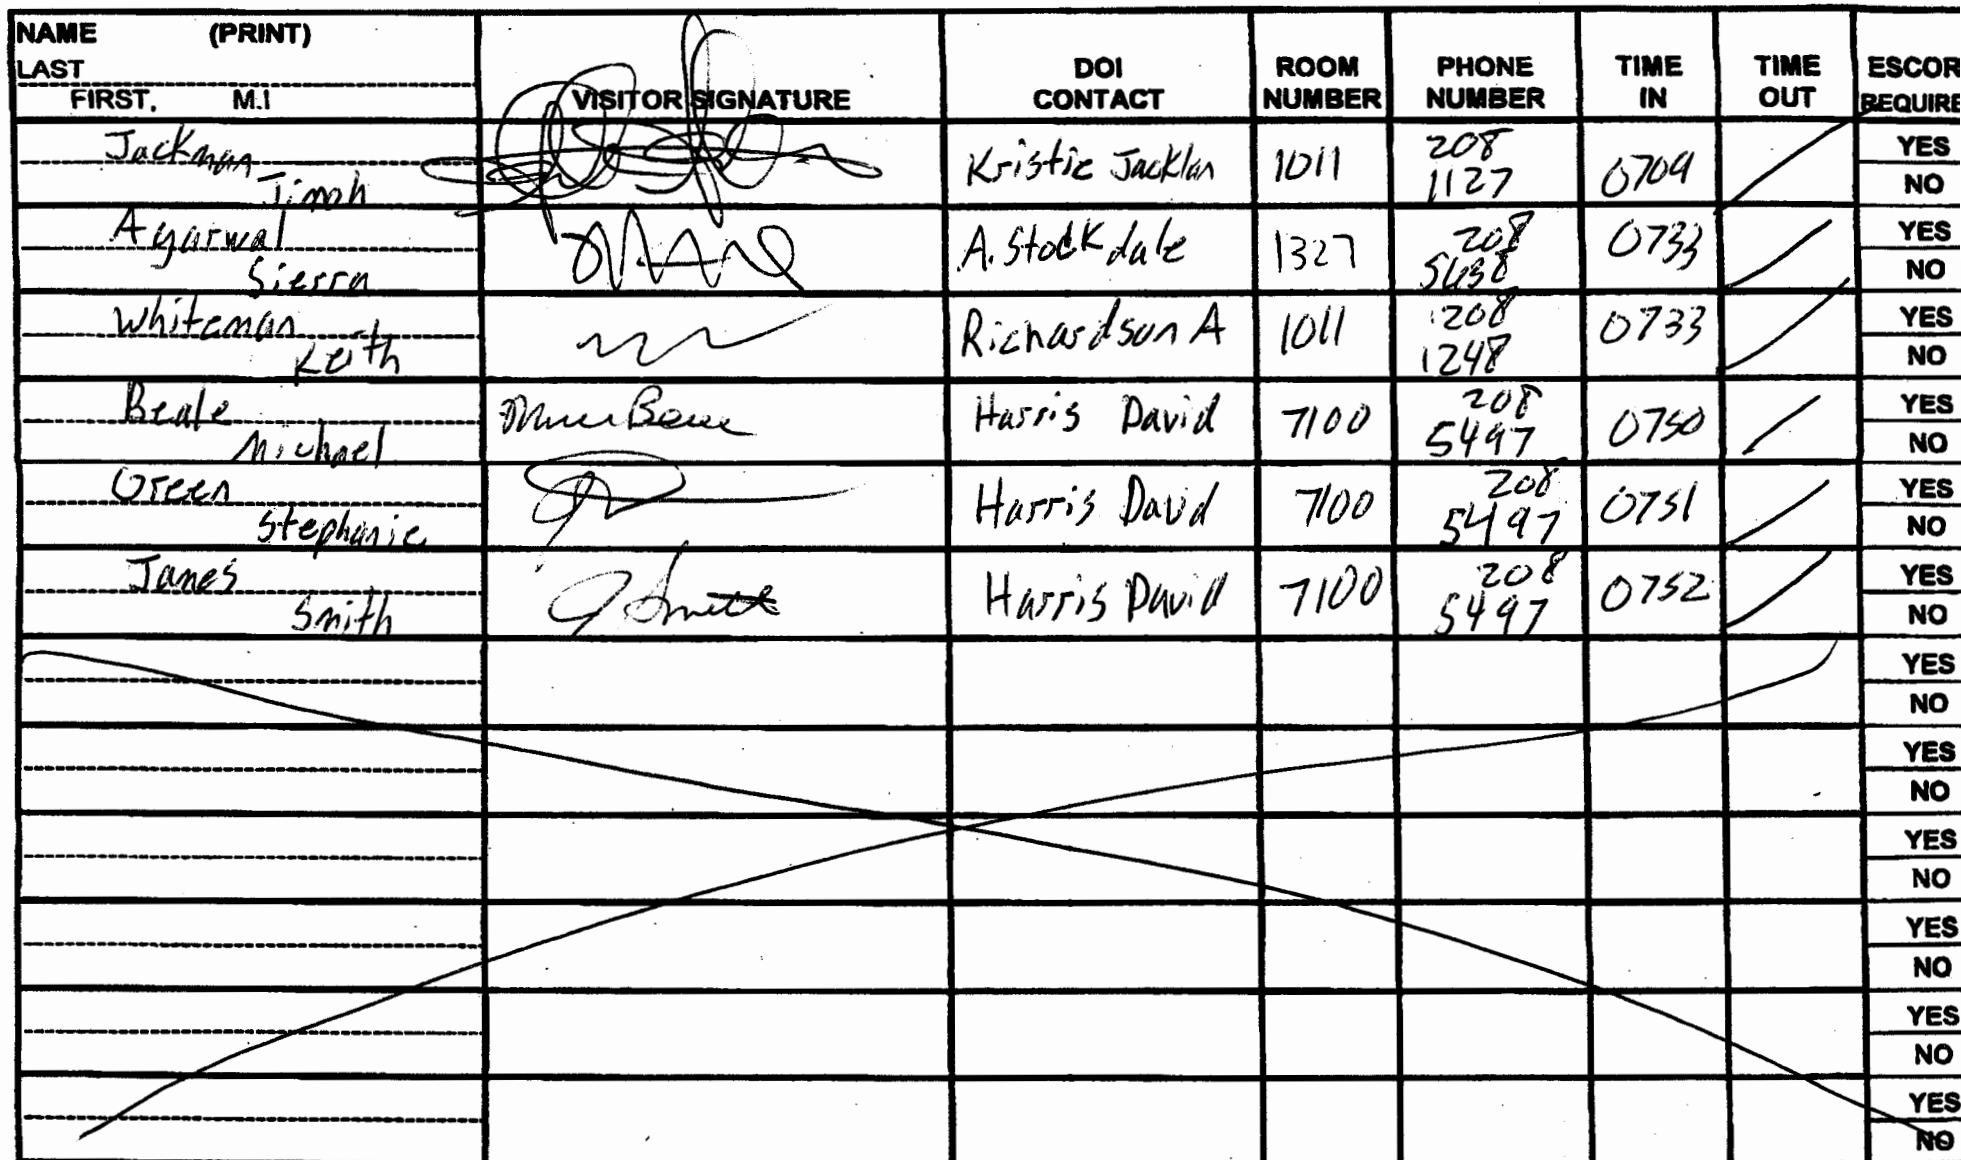 NAME (PRINT)
LAST
FIRST, M.I
VISITOR SIGNATURE
DOI
CONTACT
ROOM
NUMBER
PHONE
NUMBER
TIME
IN
TIME
OUT
ESCOR
REQUIRE
Jackman
1011
208
1127
0709
YES
NO
Agarwal
Sierra
A. Stockdale
1327
208
5638
0733
YES
NO
Whiteman
Keith
Richardson A
1011
208
1248
0733
YES
NO
Beale
Michael
Harris David
7100
208
5497
0750
YES
NO
Green
Stephanie
Harris David
7100
208
5497
0751
YES
NO
James
Smith
J Smith
Harris David
7100
208
5497
0752
YES
NO
YES
NO
YES
NO
YES
NO
YES
NO
YES
NO
YES
NO